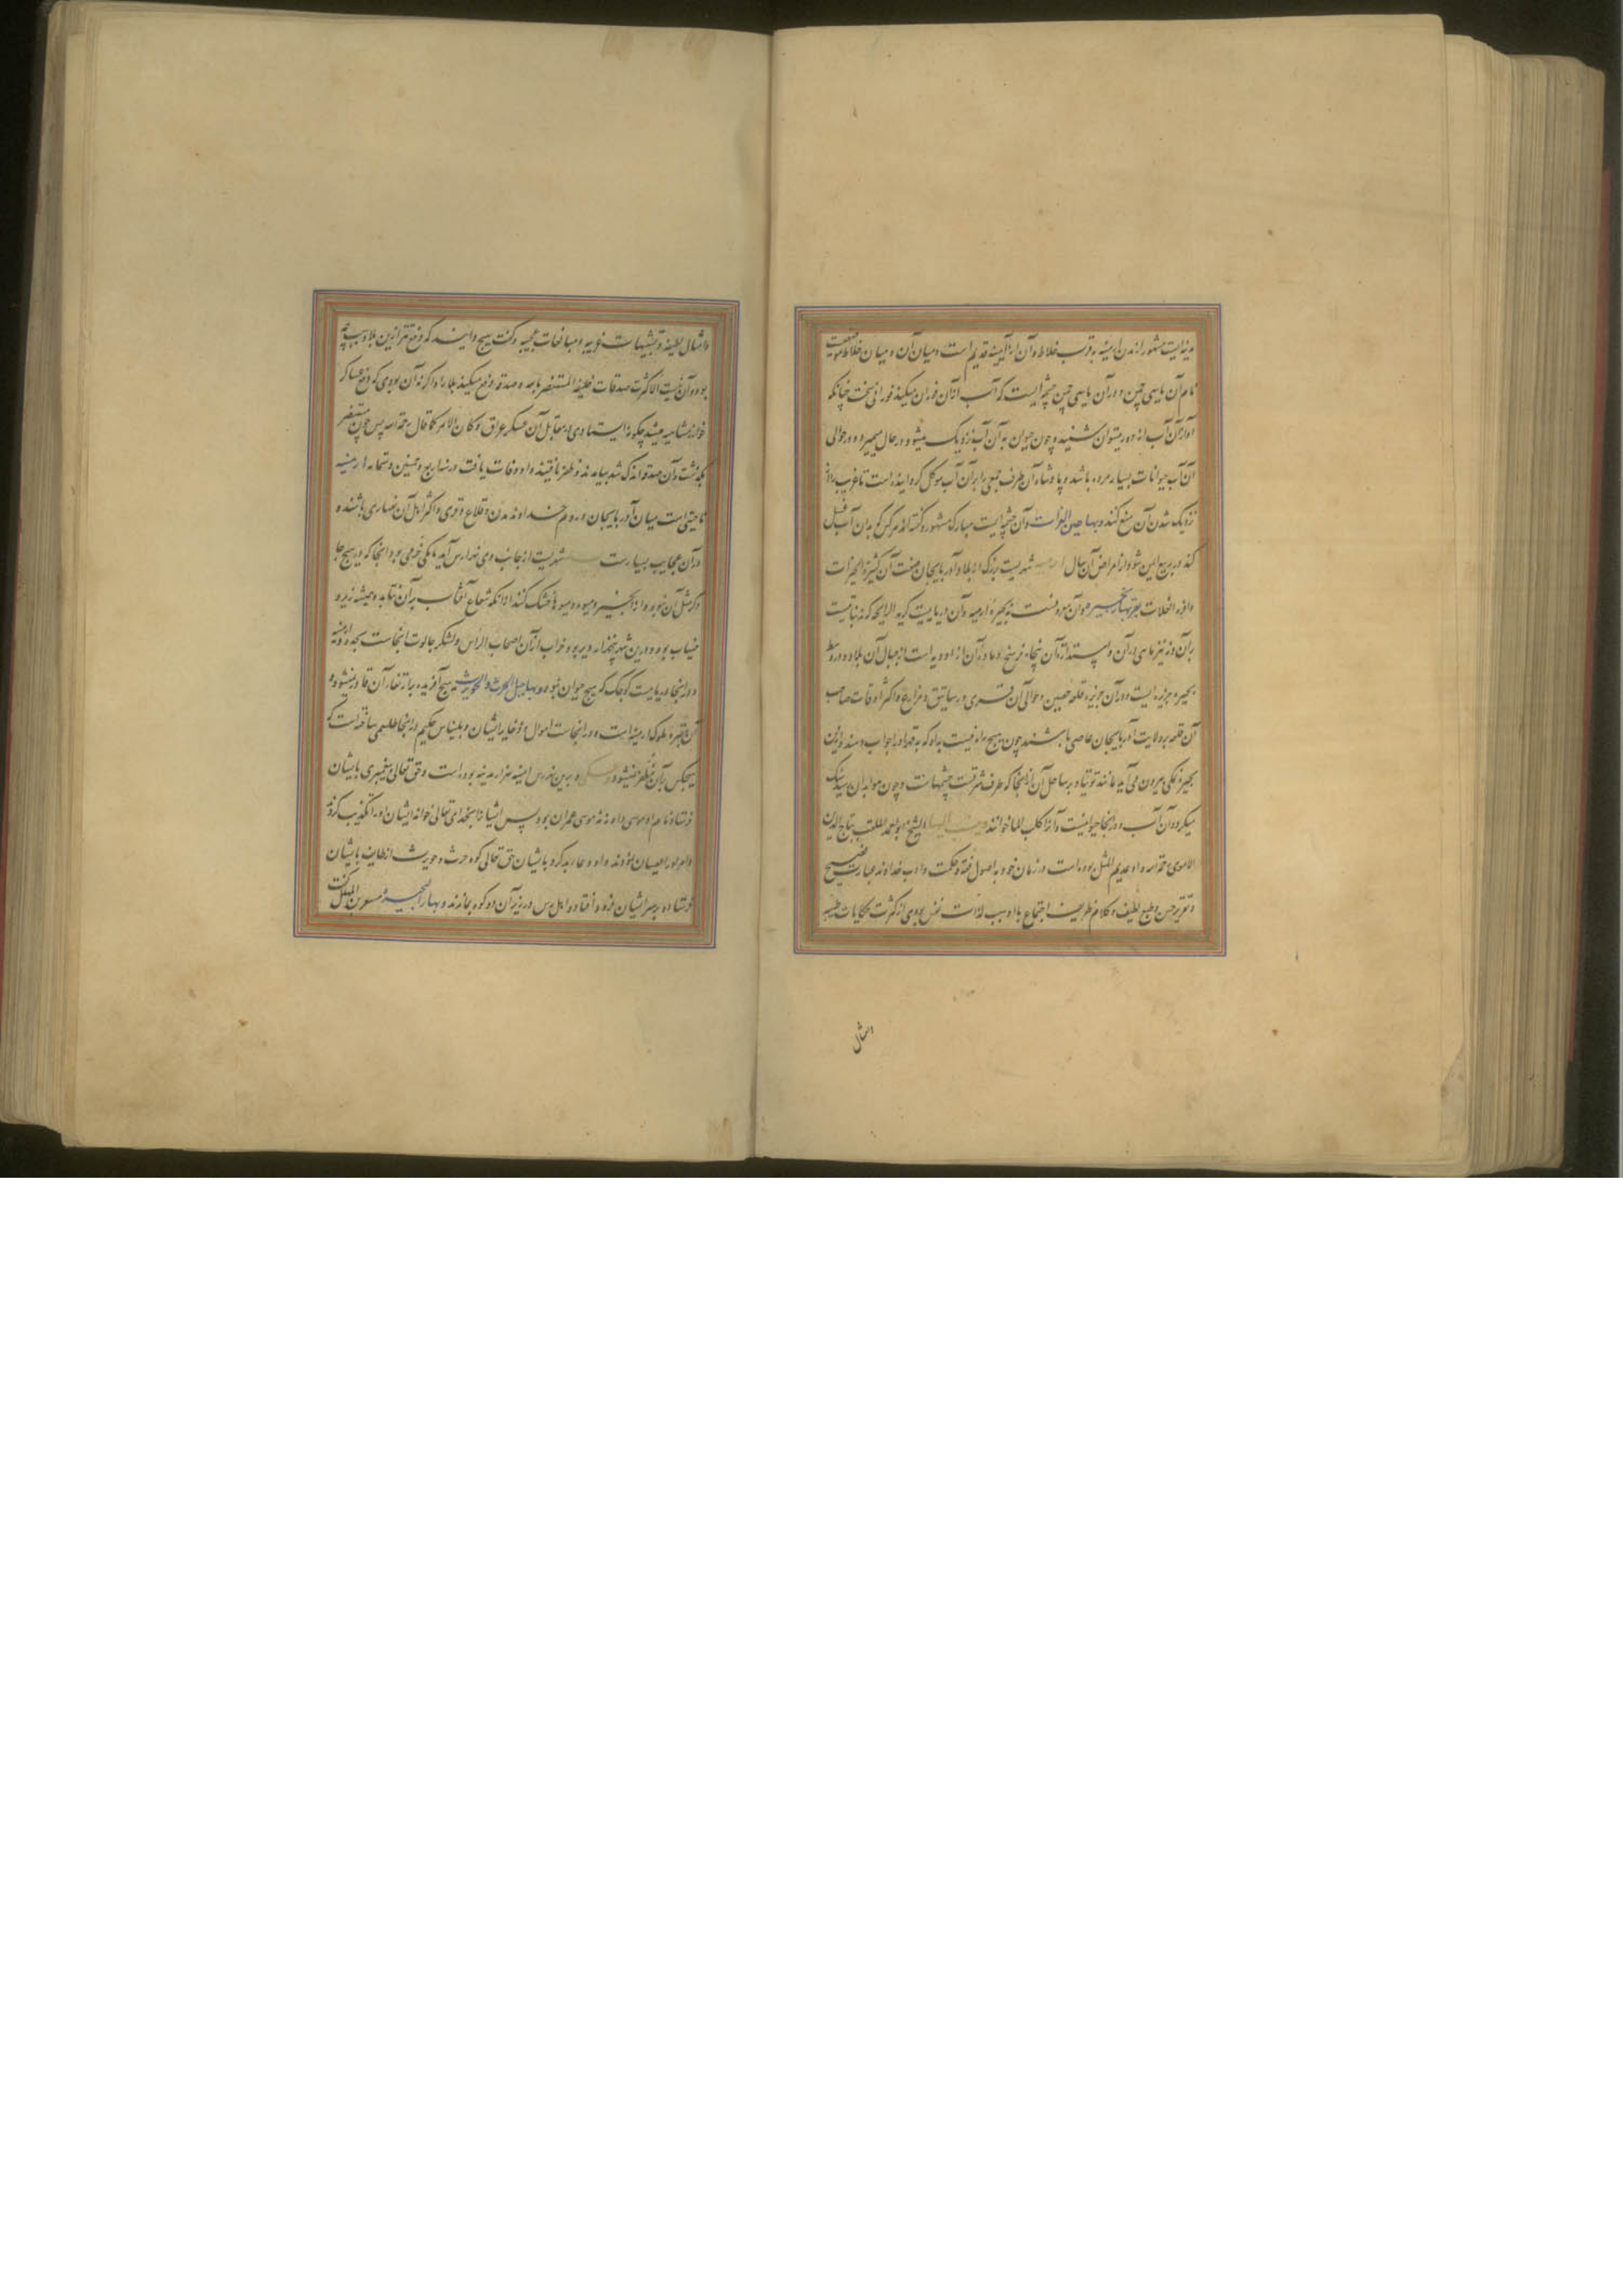 مدینه ایست مشهور از مدن ارمینیه بقرب خلاط و آن از ارمینیه قدیم است و میان آن و میان خلاط موضعیست
نام آن یاسی چمن و در آن یاسی چمن چشمه ایست که آب از آن فوران میکند فورانی سخت چنانکه
آواز آن آب از دور میتوان شنید و چون حیوان به آن آب نزدیک میشود در حال میمیرد و در حوالی
آن آب حیوانات بسیار مرده باشد و پادشاه آن طرف جمعی را بر آن آب موکل کردانیده است تا غریب را از
نزدیک شدن آن منع کنند و بها عین الفرات و آن چشمه ایست مبارک مشهور و کفته اند هر کس که بدان آب غسل
کند در ربیع ایمن شود از امراض آن سال ارمیه شهریست بزرک از بلاد آذربایجان صفت آن کثیرة الخیرات
وافرة الغلات بقربها بحیره و آن معروفست به بحیرهٔ ارمیه و آن دریاییست کریه الرایحه که نه نباتیست
بر آن و نه نیز ماهی در آن و استدارهٔ آن پنجاه فرسخ و مادر آن از اودیه است از جبال آن بلاد و در وسط
بحیره جزیره ایست و در آن جزیره قلعه حصین و حوالی آن قری و رساتیق و مزارع و اکثر اوقات صاحب
آن قلعه بر ولایت آذربایجان عاصی باشند چون هیچ راه نیست بر او که به قهر او را جواب دهند و ازین
بحیره نمکی بیرون می آید مانند توتیا و بر ساحل آن از آنجا که طرف شرقیست چشمهاست و چون هوا بدان رسد سنک
میکردد آن آب و در آنجا حیوانیست و آنرا کلب الماء خوانند و ینسب الیها الشیخ ابو احمد الملقب بتاج الدین
الارموی رحمه الله و او عدیم المثل بوده است در زمان خود به اصول فقه و حکمت و ادب خداوند عبارت فصیح
و تقریر حسن و طبع لطیف و کلام ظریف اجتماع با او سبب لذات نفس بودی از کثرت حکایات طیبه
امثال
و امثال لطیفه و تشبیهات غریبه و مبالغات عجیبه و کفت هیچ دانید که دفع تتر ازین بلاد به سبب چه
بوده و آن نیست الا کثرت صدقات خلیفه المستنصر بالله و صدقه دفع میکند بلا را و اکر نه آن بودی که دفع عساکر
خوارزمشاهیه میشد چکونه ایستادی در مقابل آن عسکر عراق و کان الامر کما قال رحمه الله پس چون مستنصر
بکذشت و آن صدقه اندک شد بیامدند و ظفر یافتند و او وفات یافت در سنه اربع و خمسین و ستمایه ارمینیه
ناحیتی است میان آذربایجان و روم خداوند مدن و قلاع و قری و اکثر اهل آن نصاری باشند و
در آن عجایب بسیارست شهریست از جانب وی نهر ارس آید یکی خرمی بود آنجا که در هیچ جا
دکر مثل آن نبود و از انجیر و میوه و میوها خشک کنند از آنکه شعاع آفتاب بر آن نتابد و همیشه زیر
ضباب بود و درین شهر پنجهزار دیر بود خراب از آن اصحاب الراس و لشکر جالوت آنجاست بحد ارمینیه
و در آنجا دریاییست کوچک که هیچ حیوان نبود و بها جبل الحرث و الحویرث هیچ آفریده بر ارتفاع آن قادر نمیشود و
آن مقبرهٔ ملوک ارمینیه است و در آنجاست اموال و ذخایر ایشان و بلیناس حکیم در آنجا طلسمی ساخته است که
هیچکس بر آن مظفر نمیشود و برین نهر رس ارمینیه هزار مدینه بوده است و حق تعالی پیغمبری بایشان
فرستاد نام او موسی و او نه موسی عمران بود پس ایشان را بخدای تعالی خواند ایشان او را تکذیب کردند
و امر او را عصیان نمودند و او دعای بد کرد بایشان حق تعالی کوه حرث و حویرث از طایف بایشان
فرستاد و بر سر ایشان فرود افتاد و اهل رس در زیر آن دو کوه بماندند و بها البحیره مسعر بن المهلهل کفت